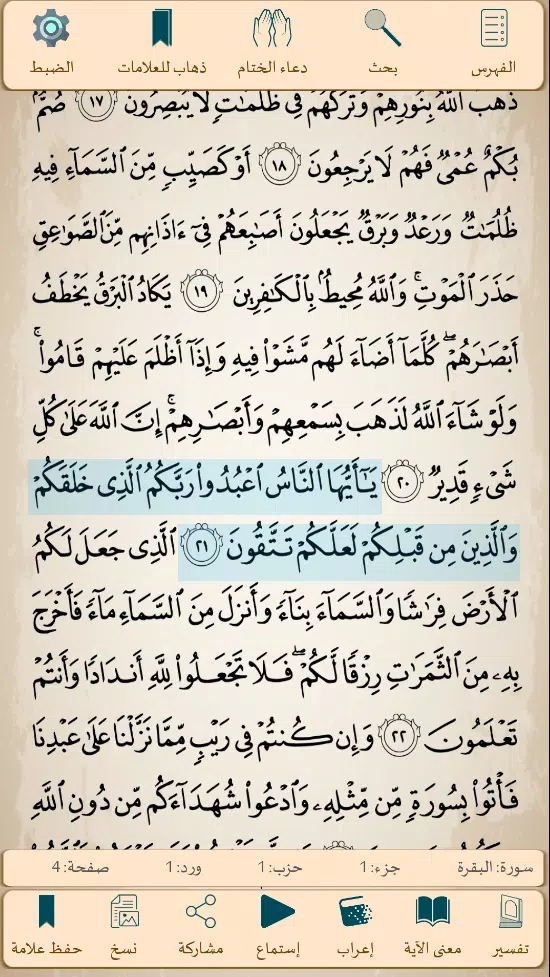 الفهرس بحث دعاء الختام ذهاب للعلامات الضبط
ذَهَبَ ٱللَّهُ بِنُورِهِمْ وَتَرَكَهُمْ فِى ظُلُمَٰتٍ لَّا يُبْصِرُونَ ١٧ صُمٌّۢ
بُكْمٌ عُمْىٌ فَهُمْ لَا يَرْجِعُونَ ١٨ أَوْ كَصَيِّبٍ مِّنَ ٱلسَّمَآءِ فِيهِ
ظُلُمَٰتٌ وَرَعْدٌ وَبَرْقٌ يَجْعَلُونَ أَصَٰبِعَهُمْ فِىٓ ءَاذَانِهِم مِّنَ ٱلصَّوَٰعِقِ
حَذَرَ ٱلْمَوْتِ ۚ وَٱللَّهُ مُحِيطٌۢ بِٱلْكَٰفِرِينَ ١٩ يَكَادُ ٱلْبَرْقُ يَخْطَفُ
أَبْصَٰرَهُمْ ۖ كُلَّمَآ أَضَآءَ لَهُم مَّشَوْا۟ فِيهِ وَإِذَآ أَظْلَمَ عَلَيْهِمْ قَامُوا۟ ۚ
وَلَوْ شَآءَ ٱللَّهُ لَذَهَبَ بِسَمْعِهِمْ وَأَبْصَٰرِهِمْ ۚ إِنَّ ٱللَّهَ عَلَىٰ كُلِّ
شَىْءٍ قَدِيرٌ ٢٠ يَٰٓأَيُّهَا ٱلنَّاسُ ٱعْبُدُوا۟ رَبَّكُمُ ٱلَّذِى خَلَقَكُمْ
وَٱلَّذِينَ مِن قَبْلِكُمْ لَعَلَّكُمْ تَتَّقُونَ ٢١ ٱلَّذِى جَعَلَ لَكُمُ
ٱلْأَرْضَ فِرَٰشًا وَٱلسَّمَآءَ بِنَآءً وَأَنزَلَ مِنَ ٱلسَّمَآءِ مَآءً فَأَخْرَجَ
بِهِۦ مِنَ ٱلثَّمَرَٰتِ رِزْقًا لَّكُمْ ۖ فَلَا تَجْعَلُوا۟ لِلَّهِ أَندَادًا وَأَنتُمْ
تَعْلَمُونَ ٢٢ وَإِن كُنتُمْ فِى رَيْبٍ مِّمَّا نَزَّلْنَا عَلَىٰ عَبْدِنَا
فَأْتُوا۟ بِسُورَةٍ مِّن مِّثْلِهِۦ وَٱدْعُوا۟ شُهَدَآءَكُم مِّن دُونِ ٱللَّهِ
سورة: البقرة جزء:1 حزب:1 ورد:1 صفحة:4
تفسير معنى الآية إعراب إستماع مشاركة نسخ حفظ علامة